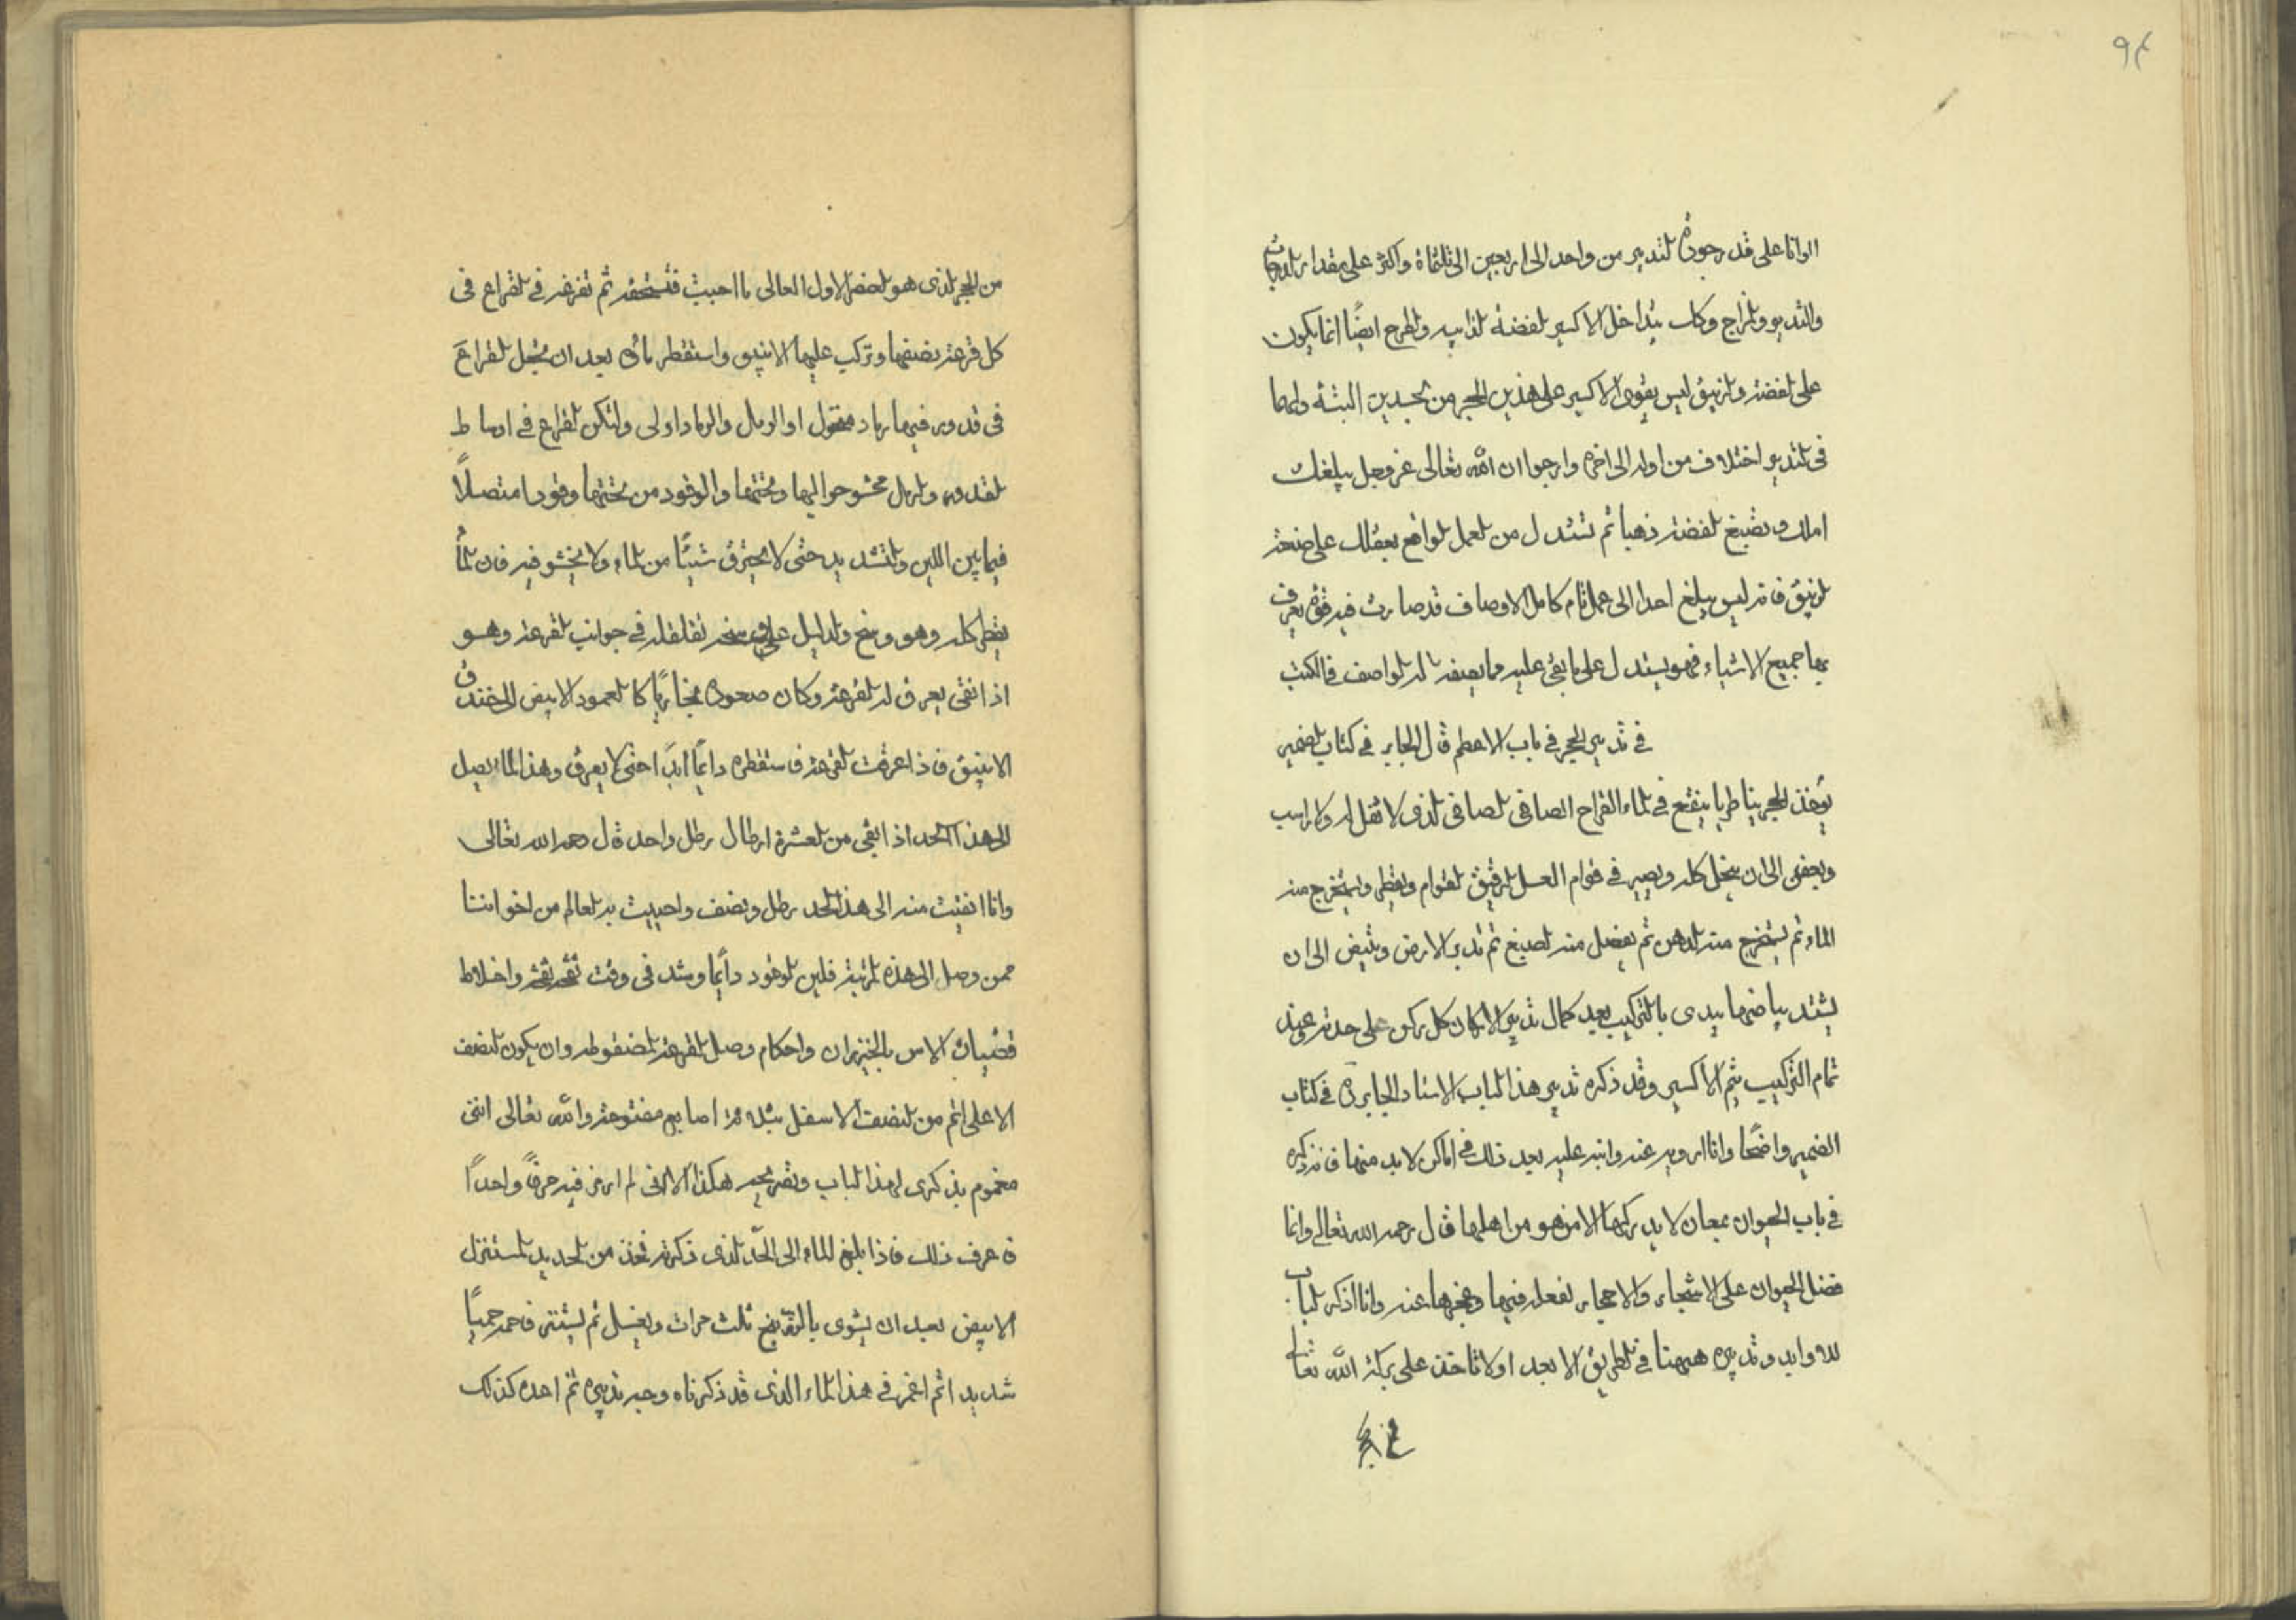 ٩٤
الوانا على قدر جودة التدبير من واحد الى اربعين الى ثلثماة واكثر على مقدار الدرجات
والتدبير والمزاج وكان يداخل الاكسير الفضة الذائبه والطرح ايضًا انما يكون
على الفضة والزيبق ليس يقوى الاكسير على هذين الحجر من تجسدين البتة ولهما
فى التدبير اختلاف من اوله الى اخره وارجوا ان الله تعالى عز وجل يبلغك
املك وتصبغ الفضة ذهبا ثم تستدل من العمل الواقع بعقلك على صنعة
الزيبق فانه ليس يبلغ احدا الى عمل تام كامل الاوصاف قد صارت فيه قوة يعرف
بها جميع الاشياء فهو يستدل على ما بقى عليه مما يصفه له الواصف فى الكتب
فى تدبير الحجر فى باب الاعظم قال الجابر فى كتاب الضمير
يؤخذ الحجر بنا طريا ينقع فى الماء القراح الصافى الصافى الذى لا ثقل له ولا راسب
ويعفن الى ان ينحل كله ويصير فى قوام العسل الرقيق القوام ويقطر ويستخرج منه
الماء ثم يستخرج منه الدهن ثم يفصل منه الصبغ ثم تدبر الارض وتبيض الى ان
يشتد بياضها يبدى بالتركيب بعد كمال تدبير الاركان كل ركن على حدته وعند
تمام التركيب يتم الاكسير وقد ذكره تدبير هذا الباب الاستاد الجابر فى كتاب
الضمير واضحًا وانا ارويه عنه وانبه عليه بعد ذلك فى اماكن لا بد منها فنذكره
فى باب الحيوان بمعان لا يدركها الا من هو من اهلها قال رحمه الله تعالى وانما
فضل الحيوان على الاشجار والاحجار لفعله فيها وعجزها عنه وانا اذكر لباب
له وابد وتدبيره ههنا فى الطريق الابعد اولا تاخذ على بركة الله تعالى
من الحجر الذى هو العنصر الاول العالى ما احببت فتسحقه ثم تفرغه فى القراع فى
كل قرعة نصفها وتركب عليها الانبيق واستقطر ماؤه بعد ان يجعل القراع
فى قدور فيها رماد منخول او الرمل والرماد اولى ولتكن القراع فى اوساط
القدور والرمل محشو حواليها وتحتها والوقود من تحتها وقودا متصلًا
فيما بين اللين والتشديد حتى لا يحترق شيئًا من الماء ولا يخشو فيه فان الماء
يقطر كله وهو وسخ والدليل على وسخه تقلقله فى جوانب القرعة وهو
اذا نقى يعرق له القرعة وكان صعوده بخاريًا كالعمود الابيض الى خندق
الانبيق فاذا عرقت القرعة فاستقطره دائمًا ابدًا حتى لا يعرق وهذا الماء يصل
الى هذا الحد اذ ابقى من العشرة ارطال رطل واحد قال رحمه الله تعالى
وانا انقيت منه الى هذا الحد رطل ونصف واحببت به العالم من اخواننا
ممن وصل الى هذه المرتبة فلين الوقود دائمًا وشد فى وقت واخلاط
قضبان الاس بالخيزران واحكام وصل القرعة المضغوطه وان يكون النصف
الاعلى اتم من النصف الاسفل بثلاثة اصابع مفتوحة والله تعالى انى
مغموم بذكرى لهذا الباب وتصريحه هكذا الا انى لم ارمز فيه حرفًا واحدًا
فاعرف ذلك فاذا بلغ الماء الى الحد الذى ذكرته فخذ من الحديد المستنزل
الابيض بعد ان يشوى بالزرنيخ ثلث مرات ويغسل ثم يستنزل فاحمه حميًا
شديدا ثم اغمره فى هذا الماء الذى قد ذكرناه وجه تدبيره ثم اعده كذلك